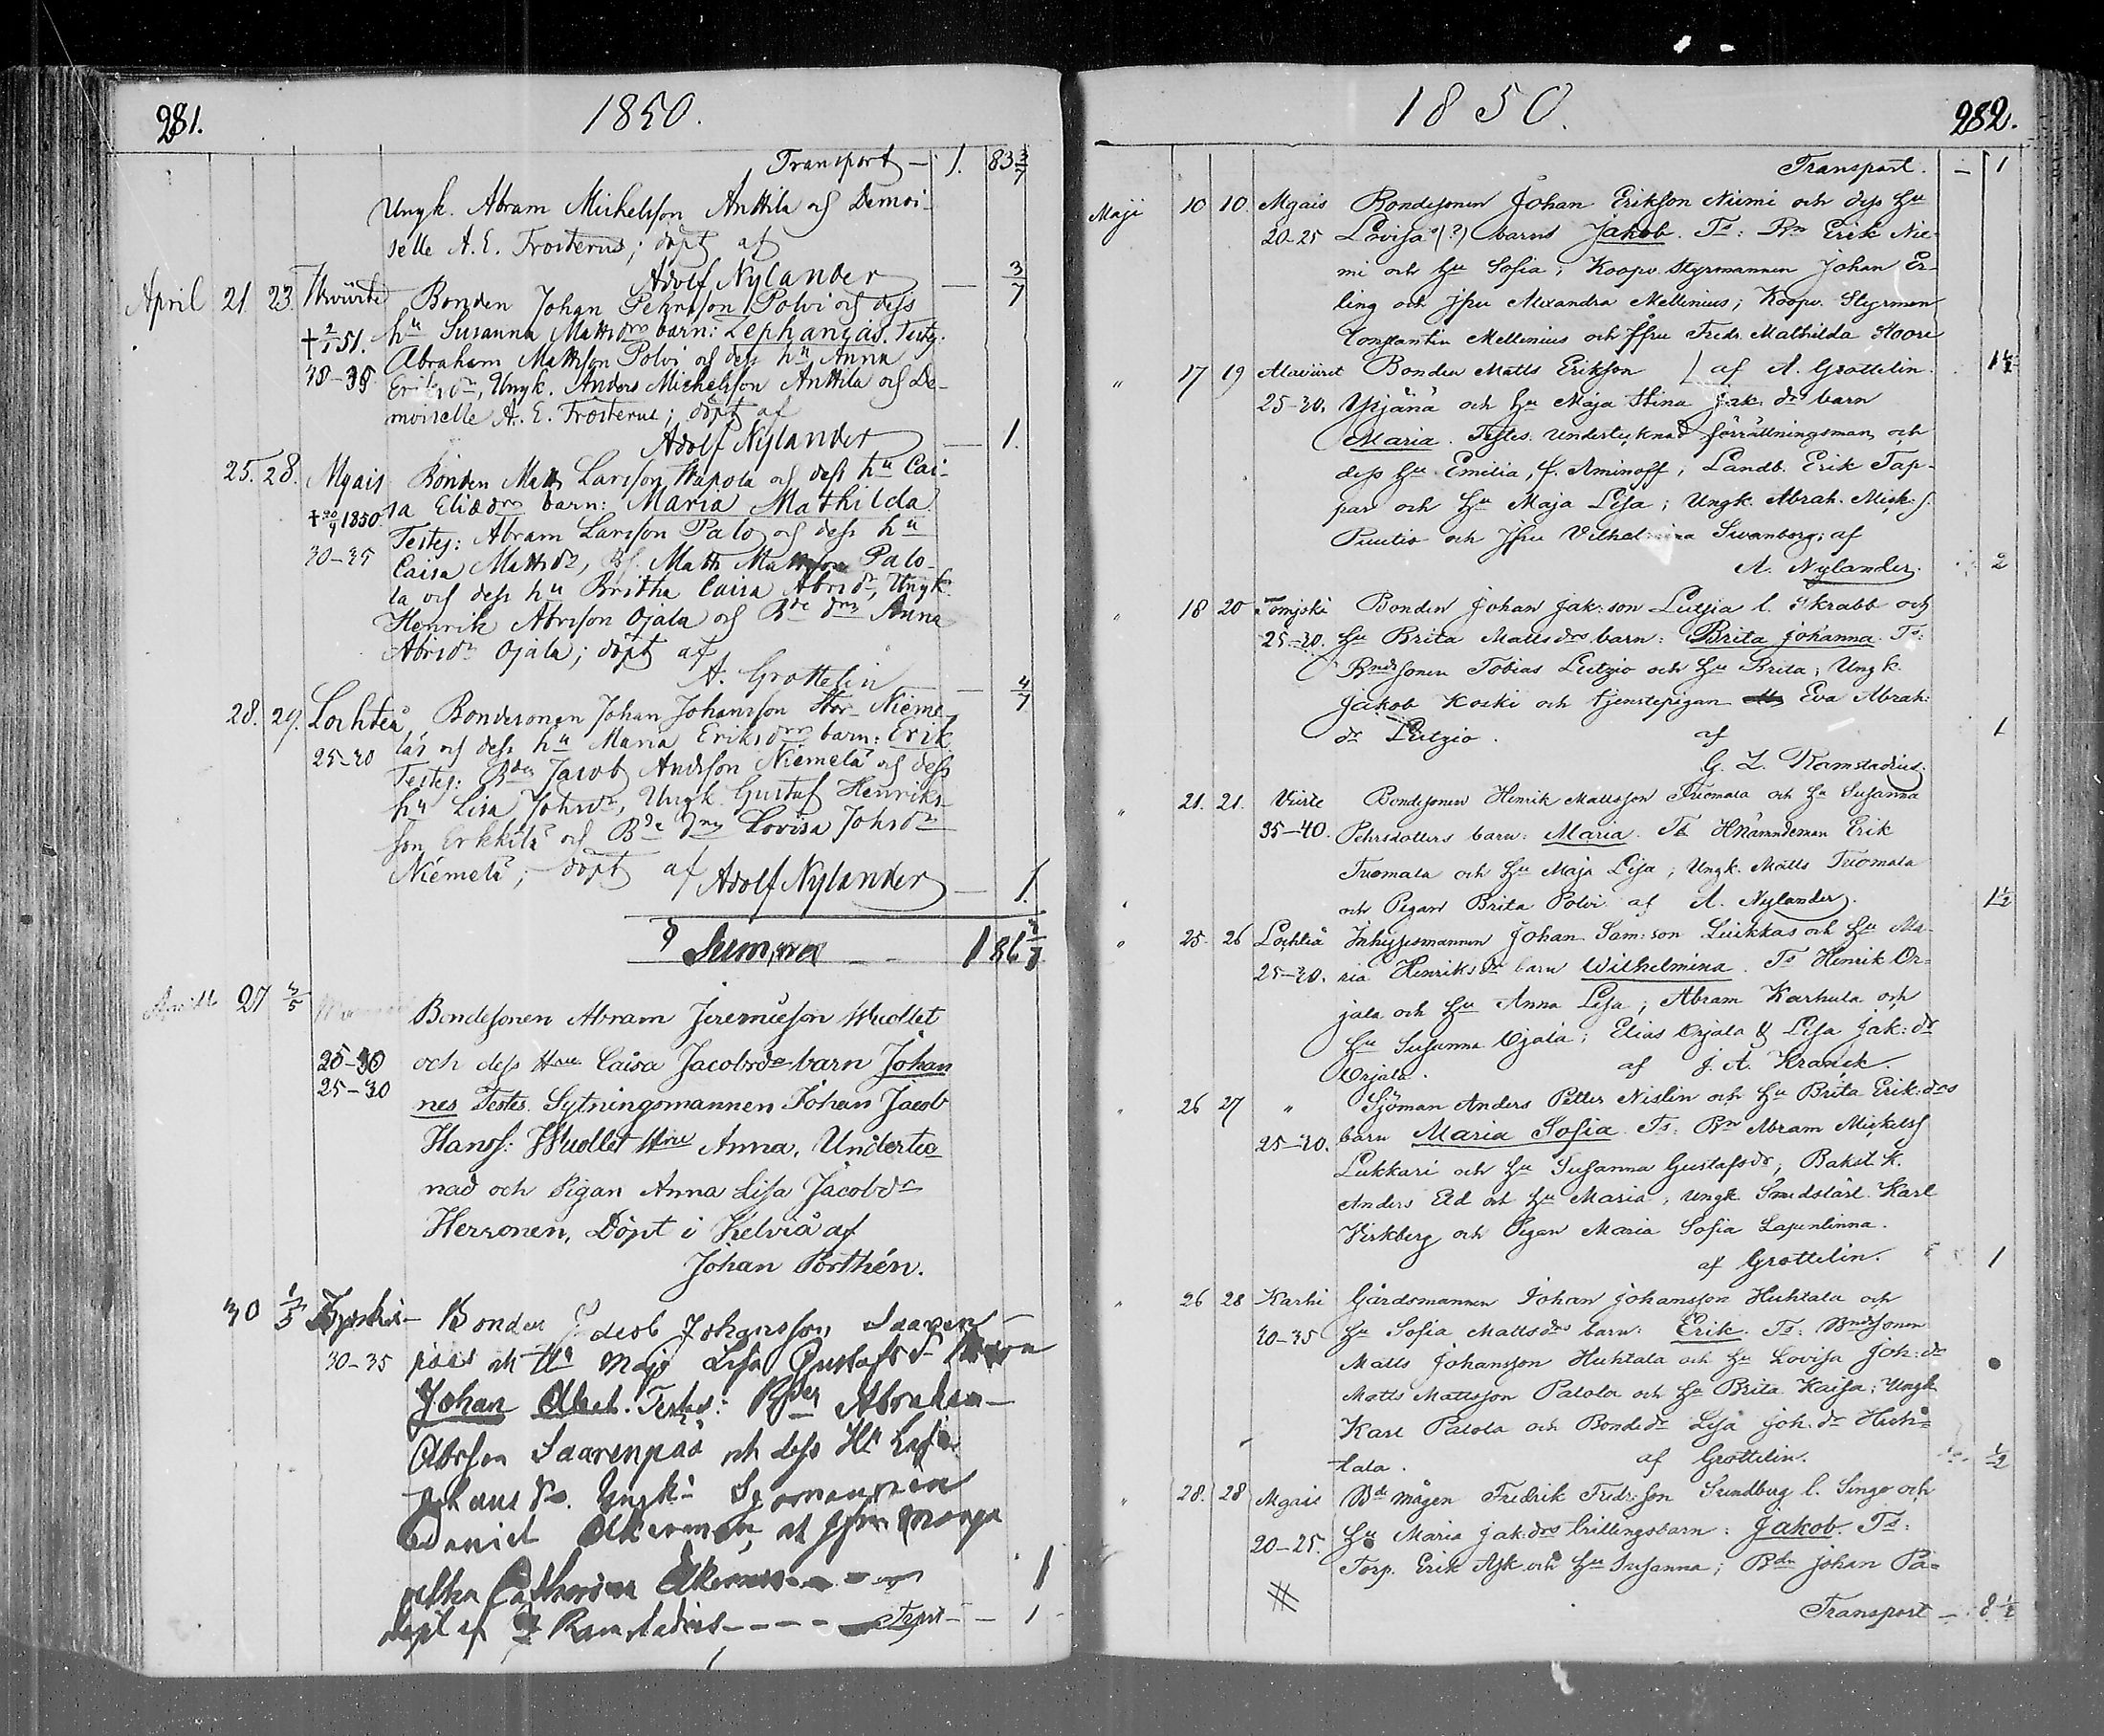 281.
1850.
Transport — 1. 83 3/7
Ungk. Abram Michelsson Anttila och Demoi-
selle A. E. Frosterus; döpt af
Adolf Nylander — 3/7
April 21. 23. Bonden Johan Pehrsson Polvi och dess
† 2/1 51. hu Susanna Mattsdrs barn: Zephanias. Testes:
Abraham Mattsson Polvi och dess hu Anna
30-35 Eriksdr, Ungk. Anders Michelsson Anttila och De-
moiselle A. E. Frosterus; döpt af
Adolf Nylander — 1.
25. 28. Mgais Bonden Matts Larsson Wapola och dess hu Cai-
† 1850. sa Eliædrs barn: Maria Mathilda.
Testes: Abram Larsson Palo och dess hu
30-35 Caisa Mattsdr, Matts Mattsson Palo-
la och dess hu Britha Caisa Abrsdr, Ungk.
Henrik Abrsson Ojala och Bde dm Anna
Abrsdr Ojala; döpt af
A. Grottelin — 4/7
28. 29. Lochteå Bondesonen Johan Johansson Stor-Nieme-
lä och dess hu Maria Eriksdrs barn: Erik.
25-30 Testes: Bden Jacob Andsson Niemelä och dess
hu Lisa Johsdr, Ungk. Gustaf Henriks-
son Erkkilä och Bde dm Lovisa Johsdr
Niemelä; döpt af
Adolf Nylander — 1.
Summa — 1 86
27 Bondesonen Abram Jeremiæson Wuollet
25-30 och dess Hru Caisa Jacobsdr barn Johan
25-30 nes Testes. Sytningsmannen Johan Jacob
Hanss: Wuollet Hru Anna, Undertec
nad och Pigan Anna Lisa Jacobdr
Herronen, Döpt i Kelviå af
Johan Porthén.
30 1/5 Bonden Jacob Johansson Saaren-
30-35 pää och Hu Maja Lisa Gustafsdr barn
Johan Albert. Testes: Bden Abraham
Abrsson Saarenpää och dess Hu
Ungk.
Daniel Åkerman, och Marga
retha Catharina Åkerman 1
döpt af Ramstadius Trspt — 1
1850.
282.
Transport. — 1
Maji 10 10. Mgais Bondesonen Johan Erikson Niemi och dess hu
20-25 Lovisa (?) barns Jakob. Ts: Bn Erik Nie-
mi och hu Sofia; Koopv. Styrmannen Johan Er-
ling och jfru Alexandra Mellenius; Koopv. Styrman
Constantin Mellenius och jfru Fredr. Mathilda Hoore
„ 17 19 Alaviiret Bonden Matts Erikson / af A. Grottelin. 1 1/2
25-30. Yrjänä och hu Maja Stina Jak. dr barn
Maria. Testes: Undertecknad förrättningsman, och
dess hu Emilia, f. Aminoff, Landb. Erik Tap-
par och hu Maja Lisa; Ungk. Abrah. Mick:s.
Puutio och Jfru Vilhelmina Swanborg; af
A. Nylander. 2
„ 18 20 Bonden Johan Jak:son Lutsia l. Skrabb och
25-30. hu Brita Mattsdrs barn: Brita Johanna. Ts:
Bndsonen Tobias Lutzio och hu Brita; Ungk.
Jakob Koski och tjenstepigan Eva Abrah:
dr Lutzio. af 1
G. L. Ramstadius.
„ 21. 21. Viirte Bondesonen Henrik Mattsson Tuomala och hu Susanna
35-40. Pehrsdotters barn: Maria. Ts: HNämndeman Erik
Tuomala och hu Maja Lisa; Ungk. Matts Tuomala
och Pigan Brita Polvi af A. Nylander. 1 1/2
„ 25. 26 Lochteå Inhysesmannen Johan Sam:son Luikkas och hu Ma-
25-30. ria Henriksdr barn Wilhelmina. Ts Henrik Or-
jala och hu Anna Lisa; Abram Karhula och
hu Susanna Ojala; Elias Orjala & Lisa Jak:dr
Orjala. af J. A. Kranck.
„ 26 27 „ Sjöman Anders Petter Nislin och hu Brita Erik:drs
25-30. barn Maria Sofia. Ts: Bn Abram Mickelss
Lukkari och hu Susanna Gustafsdr, Bakst. k.
Anders Eld och hu Maria; ungk. Smedslärl. Karl
Virkberg och Pigan Maria Sofia Lapinlinna.
af Grottelin. 1
„ 26 28 Karhi Gårdsmannen Johan Johansson Huhtala och
30-35 hu Sofia Mattsdrs barn: Erik. Ts: Bndsonen
Matts Johansson Huhtala och hu Lovisa Joh:dr
Matts Mattsson Palola och hu Brita Kaisa; Ungk.
Karl Palola och Bondedr Lisa Joh.dr Huh-
tala. af Grottelin. 1/2
„ 28. 28 Mgais Bdmågen Fredrik Fredr:son Sundberg l. Singo och
20-25. hu Maria Jak:drs trillingsbarn: Jakob. Ts:
Torp. Erik Ask och hu Susanna; Bdn Johan Pä-
Transport — 8 1/2